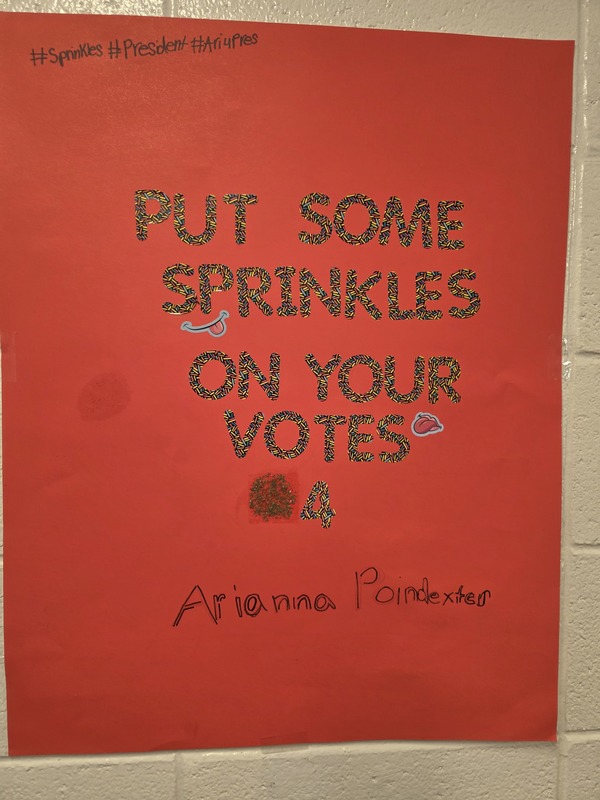 #Sprinkles #President #Ari4Pres
PUT SOME
SPRINKLES
ON YOUR
VOTES
4
Arianna Poindexter